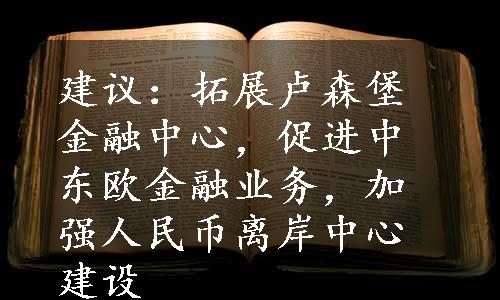 建议：拓展卢森堡
金融中心，促进中
东欧金融业务，加
强人民币离岸中心
建设